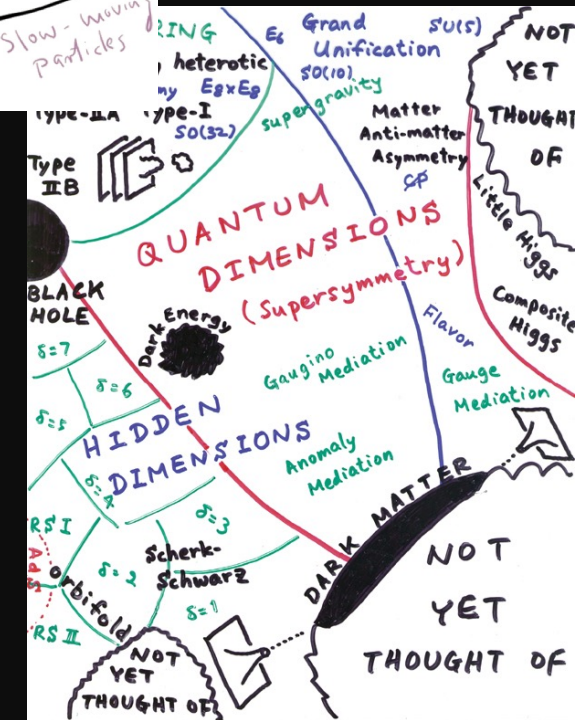 Slow-moving
Particles
RING
heterotic
E8xE8
Type-IIA
Type-I
SO(32)
Type
IIB
E6 Grand SU(5)
Unification
SO(10)
supergravity
Matter
Anti-matter
Asymmetry
CP
NOT
YET
THOUGHT
OF
Little Higgs
Composite
Higgs
QUANTUM
DIMENSIONS
(Supersymmetry)
BLACK
HOLE
Dark Energy
Flavor
Gaugino
Mediation
Gauge
Mediation
Anomaly
Mediation
δ=7
δ=6
δ=5
HIDDEN
DIMENSIONS
δ=4
δ=3
RS I
AdS
Scherk-
Schwarz
δ=2
orbifold
δ=1
RS II
DARK MATTER
NOT
YET
THOUGHT OF
NOT
YET
THOUGHT OF